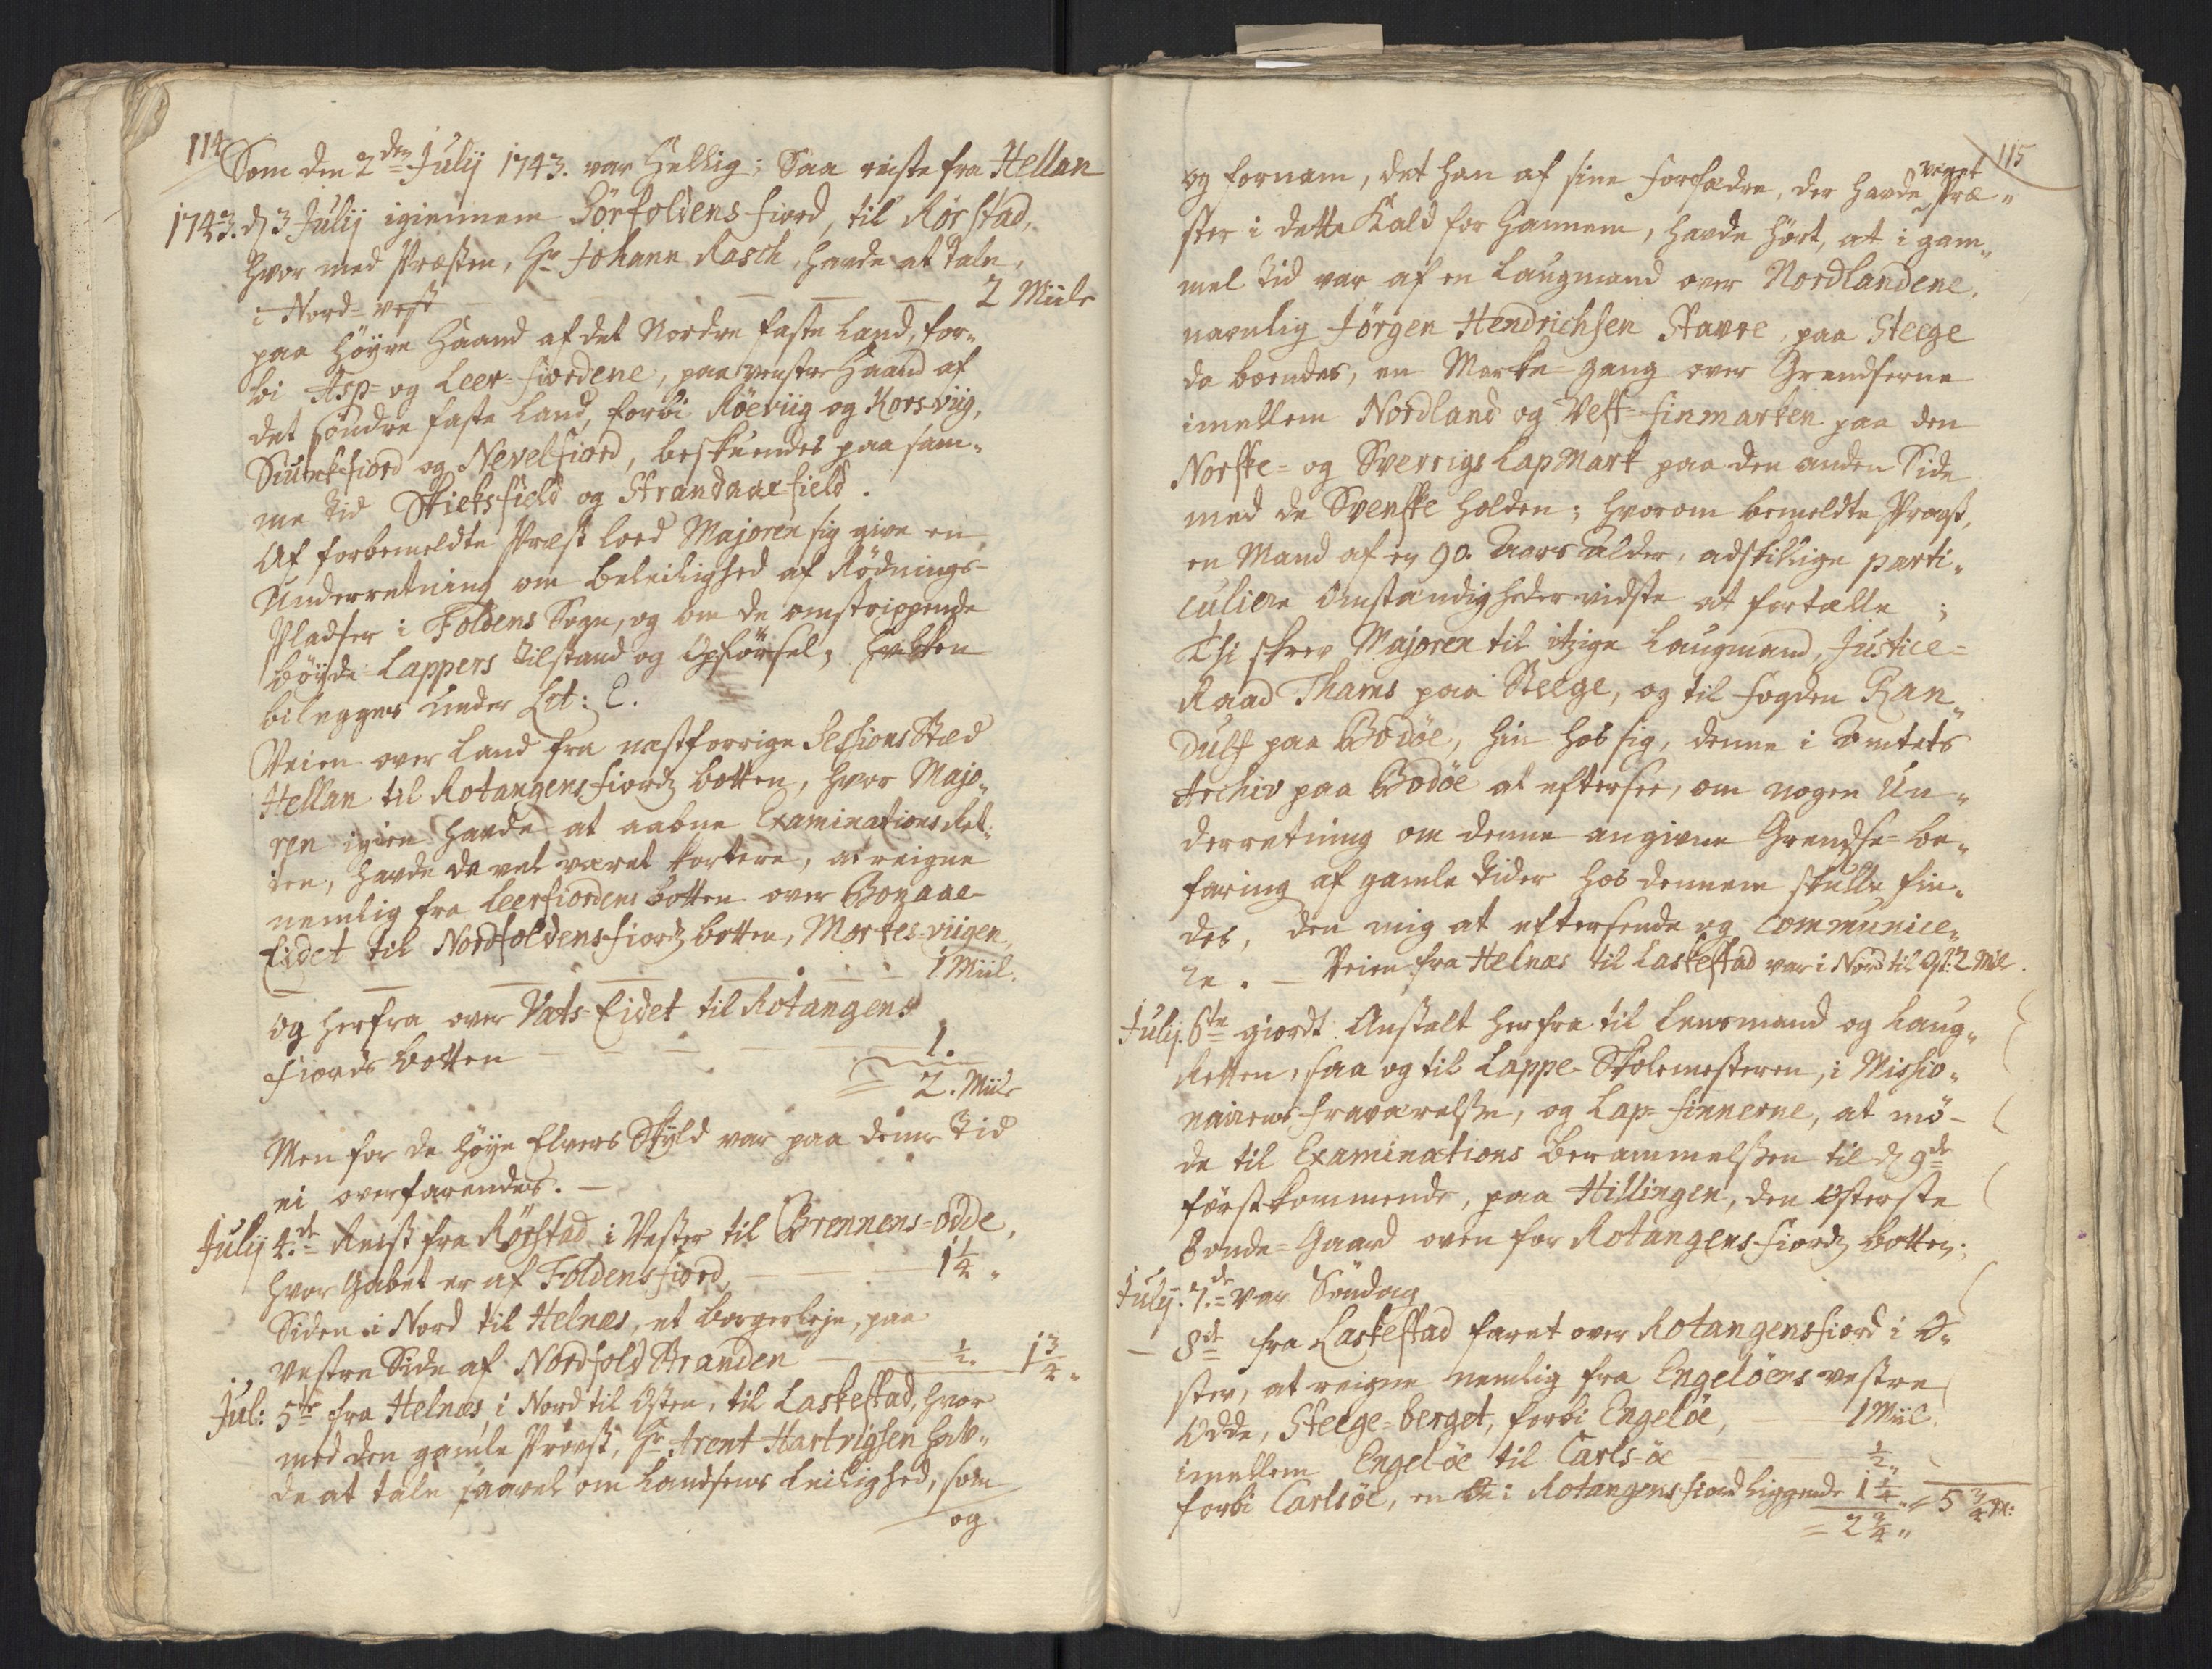 114
Som den 2den Julij 1743. var Hellig; Saa reiste fra Hellan
1743. d 3 Julij igiennem Sörfoldens fiord, til Rörstad,
hvor med Præsten, Hr Johann Rasch, havde at tale,
i Nord-vest — — — — 2 Miile
paa höyre Haand af det Nordre faste Land, for-
bi Asp- og Leer-fiordene, paa venstre Haand af
det söndre faste Land, forbi Röeviig og Korsviig,
Siunkfiord og Nevelfiord, beskuendes paa sam-
me Tid Stieksfield og Strandaaefield.
Af forbemeldte Præst loed Majoren sig give en
Underretning om beleilighed af Rödnings-
Pladser i Foldens Sogn, og om de omstrippende
böyde-Lappers tilstand og Opförsel, hvilken
bilegges under Lit: E.
Veien over Land fra næstforrige Sessions Stæd
Hellan til Rotangens fiords botten, hvor Majo-
ren igien havde at aabne Examinations Ret-
ten, havde da vel været kortere, at reigne
nemlig fra Leerfiordens botten over Bonaae-
Eidet til Nordfoldens fiords botten, Morkes-viigen,
— — — — — 1 Miil.
og herfra over Vats-Eidet til Rotangens
fiords botten — — — 1.
= 2. Miile
Men for de höye Elvers Skyld var paa denne Tid
ei overfarendes. —
Julij 4.de Reist fra Rörstad i Vester til Brennens-odde,
hvor Gabet er af Foldens fiord, — — 1 1/4 "
Siden i Nord til Helnæs, et borgerleje, paa
vestre Side af Nordfold Stranden — — 1/2. 1 3/4 "
Jul: 5te fra Helnæs i Nord til Osten, til Laskestad, hvor
med den gamle Provst, Hr Arent Hartvigsen hav-
de at tale saavel om Landsens Leilighed, som
og
115
og fornam, det han af sine forfædre, der havde været Præ-
ster i dette Kald for hannem, havde hört, at i gam-
mel tid var af en Laugmand over Nordlandene,
navnlig Jörgen Hendrichsen Stavre, paa Steege
da boendes, en Marke-gang over Grendserne
imellem Nordland og Vest-finmarken paa den
Norske- og Sverrigs LapMark paa den anden Side
med de Svenske holden; hvorom bemeldte Provst,
en Mand af 90. Aars alder, adskillige parti-
culiere Omstændigheder vidste at fortælle;
Thi skrev Majoren til itzige Laugmand, Justice-
Raad Thams paa Steege, og til fogden Ran-
dulf paa Bodöe, hin hos sig, denne i Amtets
Archiv paa Bodöe at eftersee, om nogen Un-
derretning om denne angivne Grendse-be-
faring af gamle tider hos dennem skulle fin-
des, den mig at eftersende og communice-
re. — Veien fra Helnæs til Laskestad var i Nord til Ost: 2 Mile.
Julij. 6te giordt Anstalt herfra til Lensmand og Laug-
Retten, saa og til Lappe-Skolemesteren, i Missio-
nairens fraværelse, og Lap-finnerne, at mö-
de til Examinations berammelsen til d 9de
förstkommende, paa Hillingen, den Osterste
Bonde-Gaard oven for Rotangens fiords botten.
Julij. 7.de var Söndag
— 8de fra Laskestad faret over Rotangensfiord i O-
ster, at reigne nemlig fra Engelöens vestre
Odde, Steege-berget, forbi Engelöe, 1 Miil.
imellem Engelöe til Carls-öe — — 1/2 "
forbi Carlsöe, en Öe i Rotangens fiord liggende 1 1/4 " = 5 3/4 M:
= 2 3/4 "